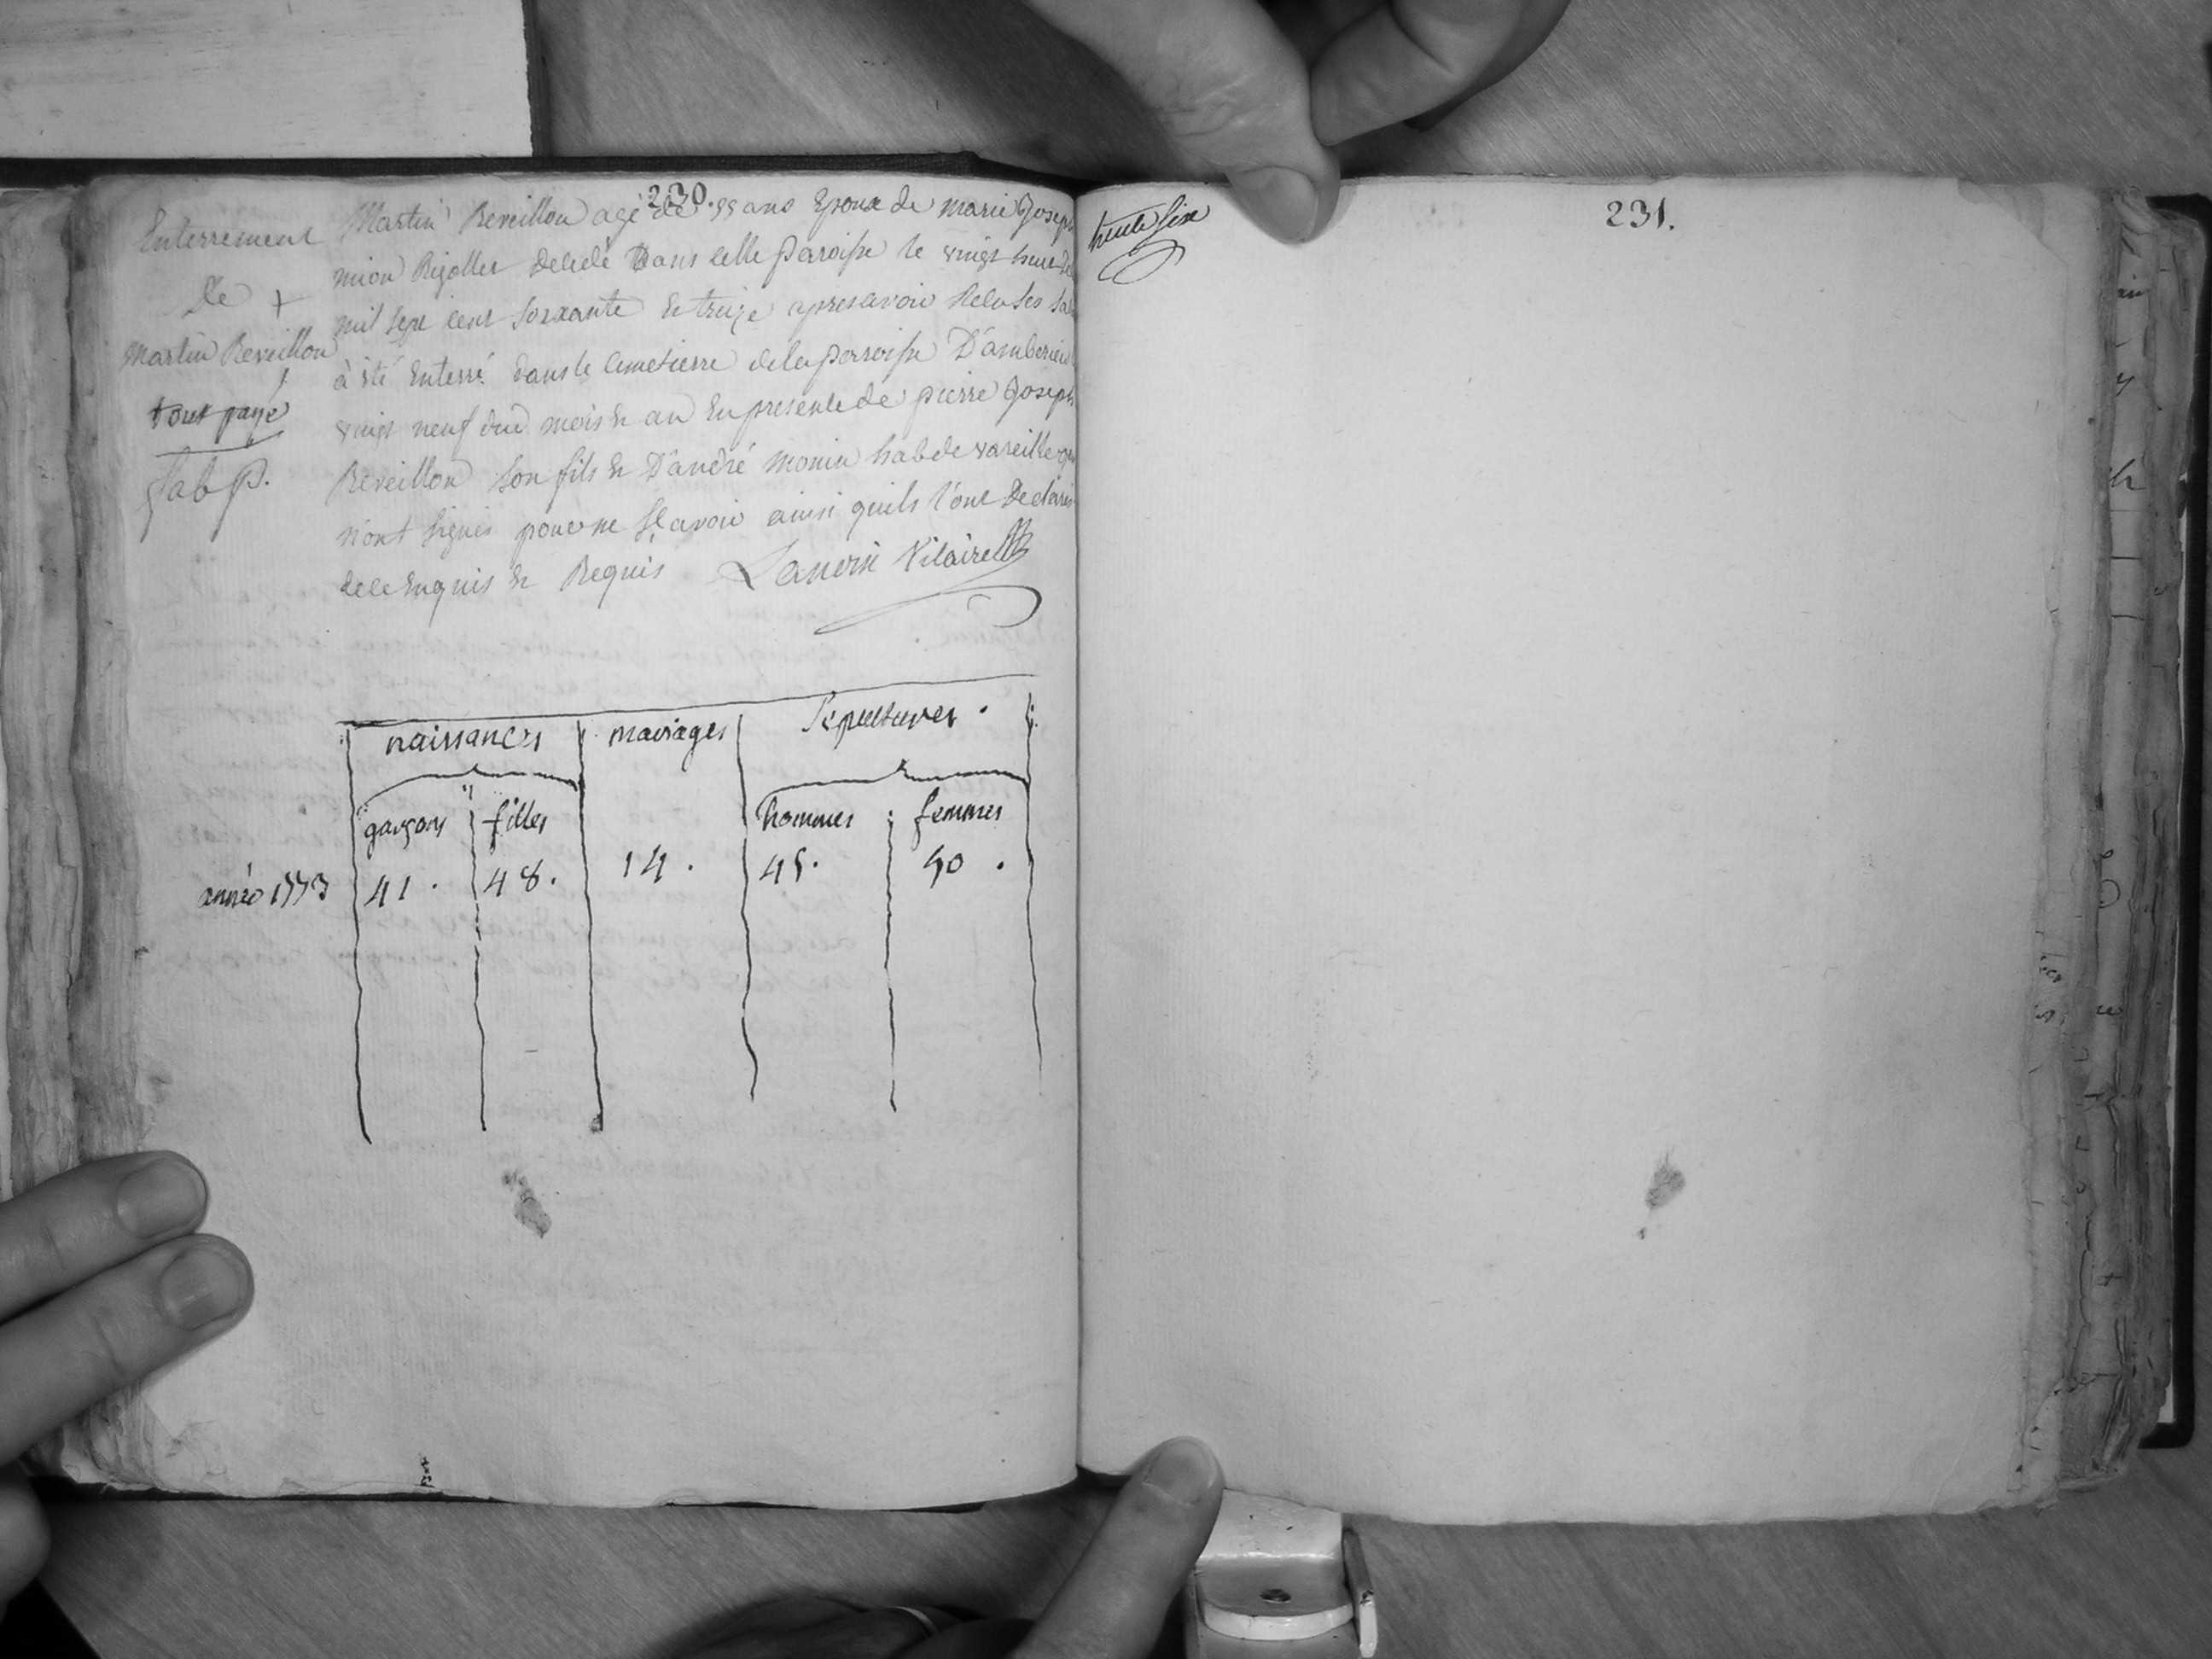 230.
Enterrement
De +
Martin Reveillon
tout payé
fab p.
Martin Reveillon agé de 55 ans Epoux de marie Joseph
mion Rigollet decedé Dans cette paroisse le vingt huit
mil sept cent soixante et treize apres avoir Recu ses
à été Enterré dans le Cimetierre de la parroisse D'amberieu
vingt neuf dud mois et an En presente de pierre Joseph
Reveillon son fils et D'andré monin hab de vareille qui
n'ont signés pour ne sçavoir ainsi quils l'ont Declarés
de ce Enquis et Requis Lanvin Vicaire
naissances mariages Sepultures.
garçons filles hommes femmes
année 1773 41. 48. 14. 45. 50.
trente six
231.